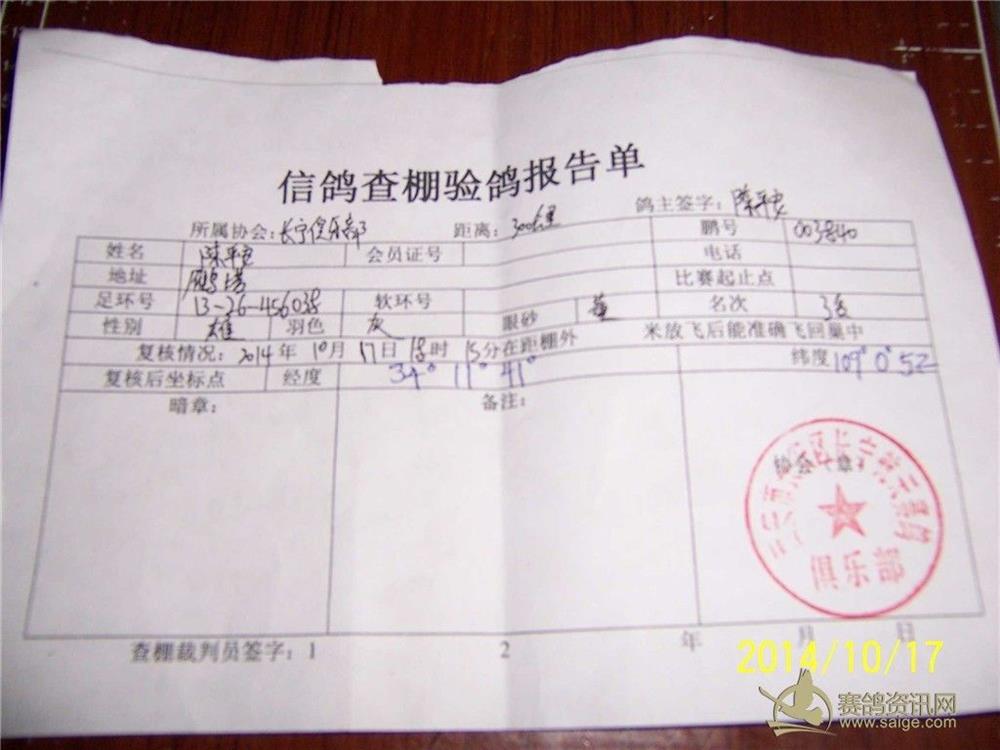 信鸽查棚验鸽报告单
所属协会：长宁俱乐部 距离：300公里 鸽主签字：陈平安
姓名 陈平安 会员证号 鹏号 003840
地址 雁塔 电话
比赛起止点
足环号 13-26-456038 软环号 眼砂 黄 名次 3名
性别 雄 羽色 灰
复核情况：2014年10月17日18时15分在距棚外 米放飞后能准确飞回巢中
复核后坐标点 经度 34° 11° 41° 纬度 109° 0 52
暗章： 备注：
协会（章）
俱乐部
查棚裁判员签字：1 2 年 月 日
2014/10/17
赛鸽资讯网
www.saige.com